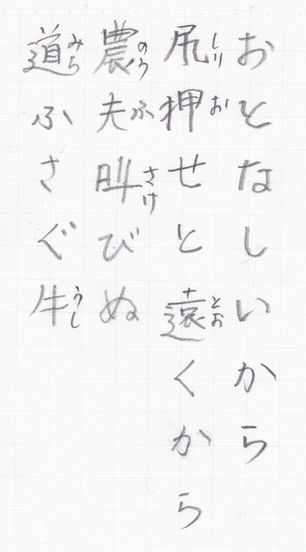 おとなしいから
尻押せと遠くから
農夫叫びぬ
道ふさぐ牛